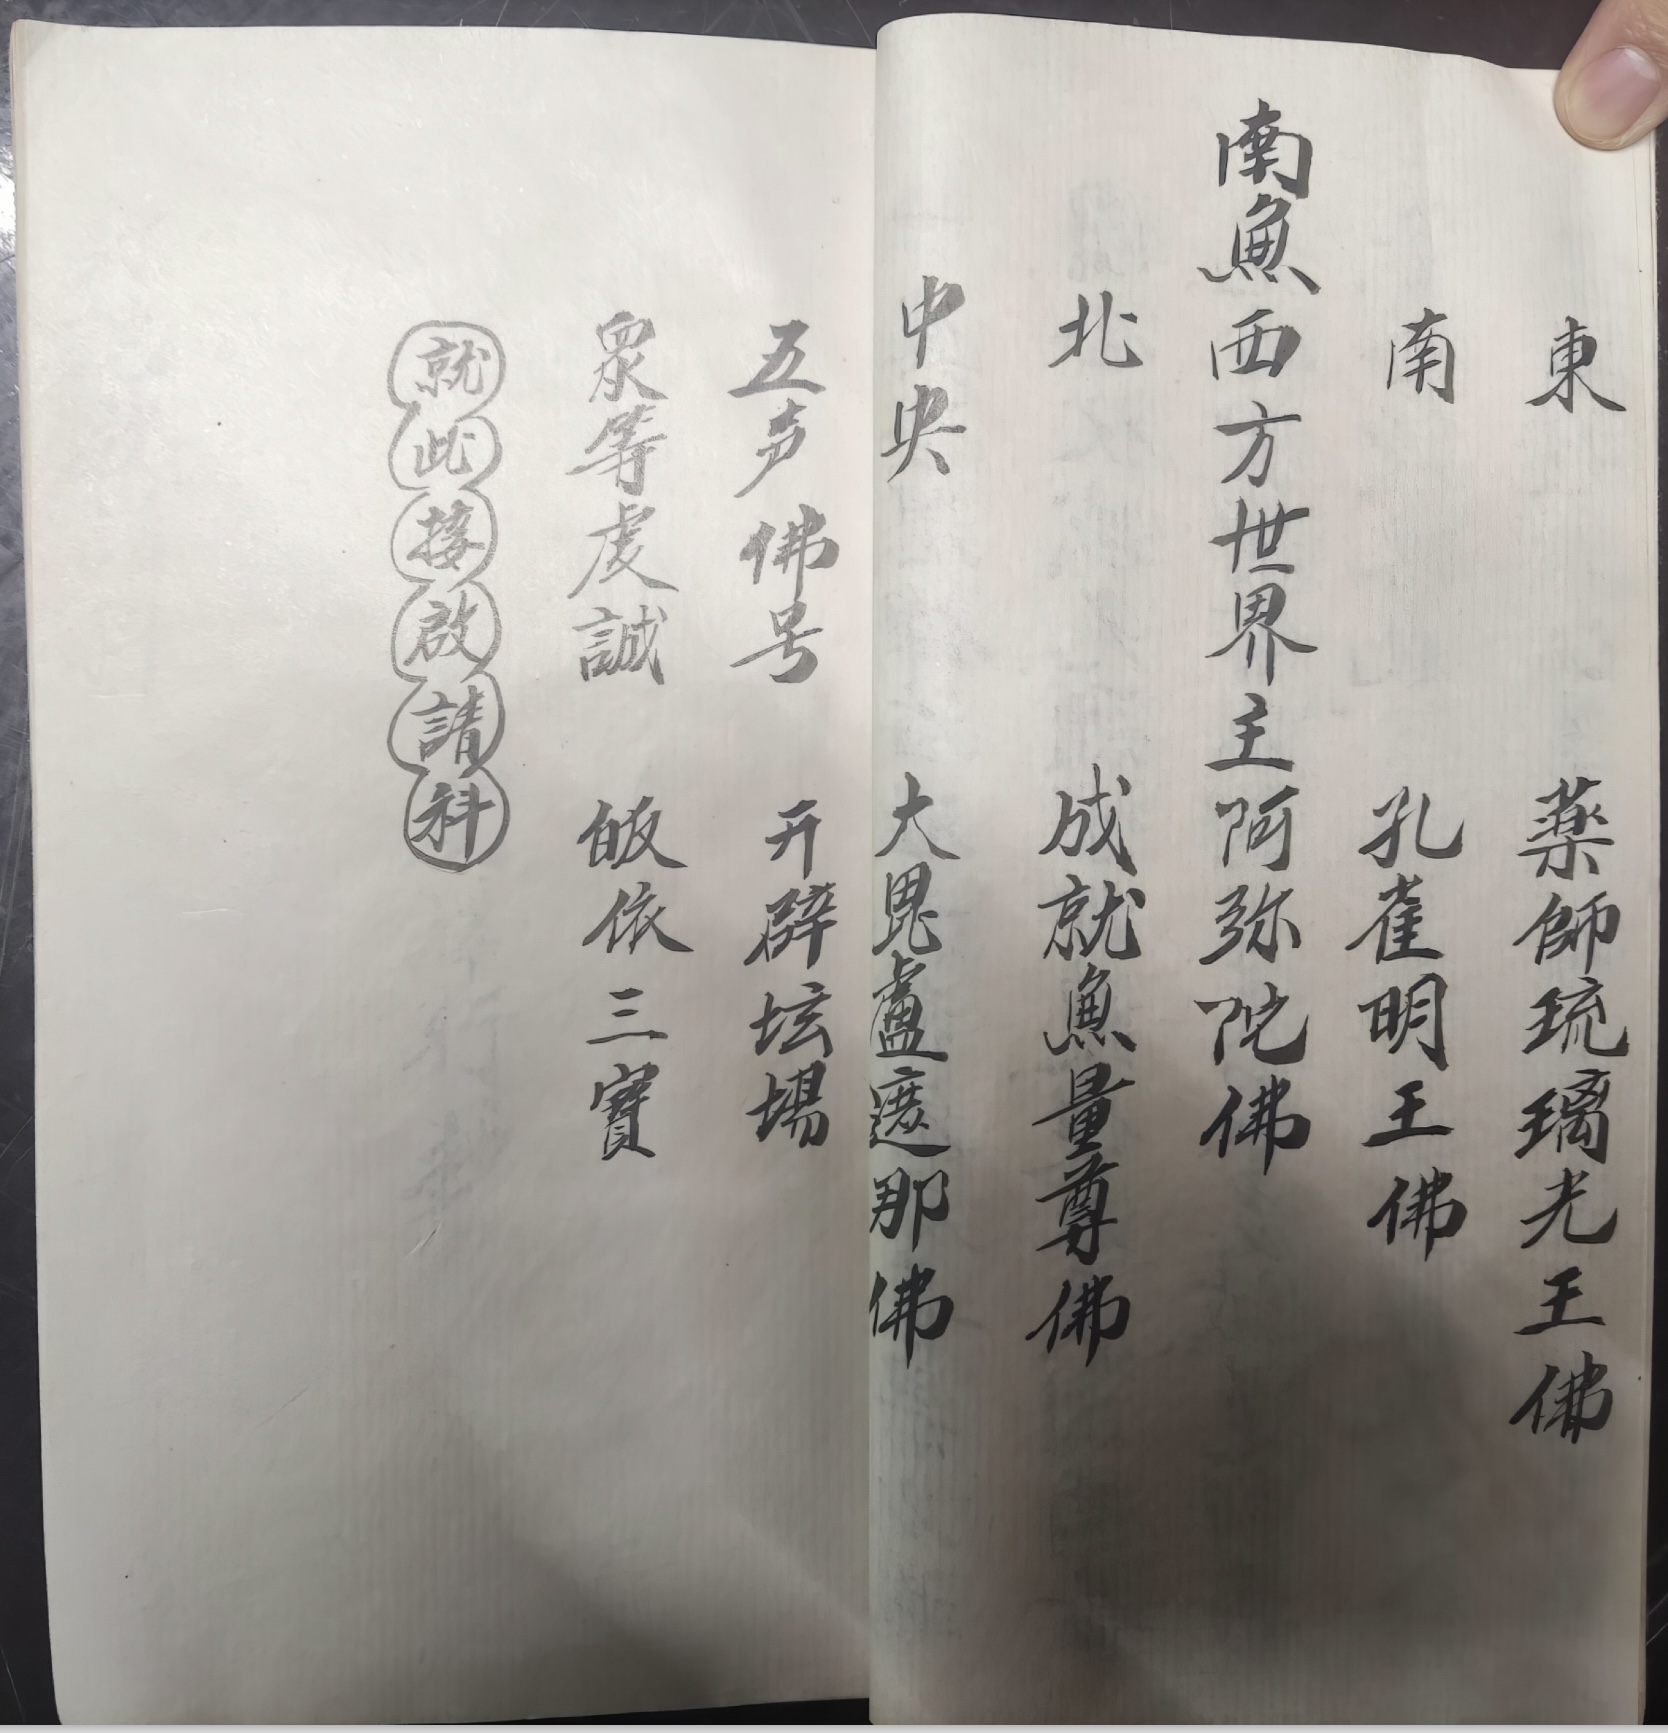 東 薬師琉璃光王佛
南 孔雀明王佛
南魚西方世界主阿弥陀佛
北 成就魚量尊佛
中央 大毘盧遮那佛
五声佛号 开辟坛場
眾等虔誠 皈依三寶
就此接啟請科